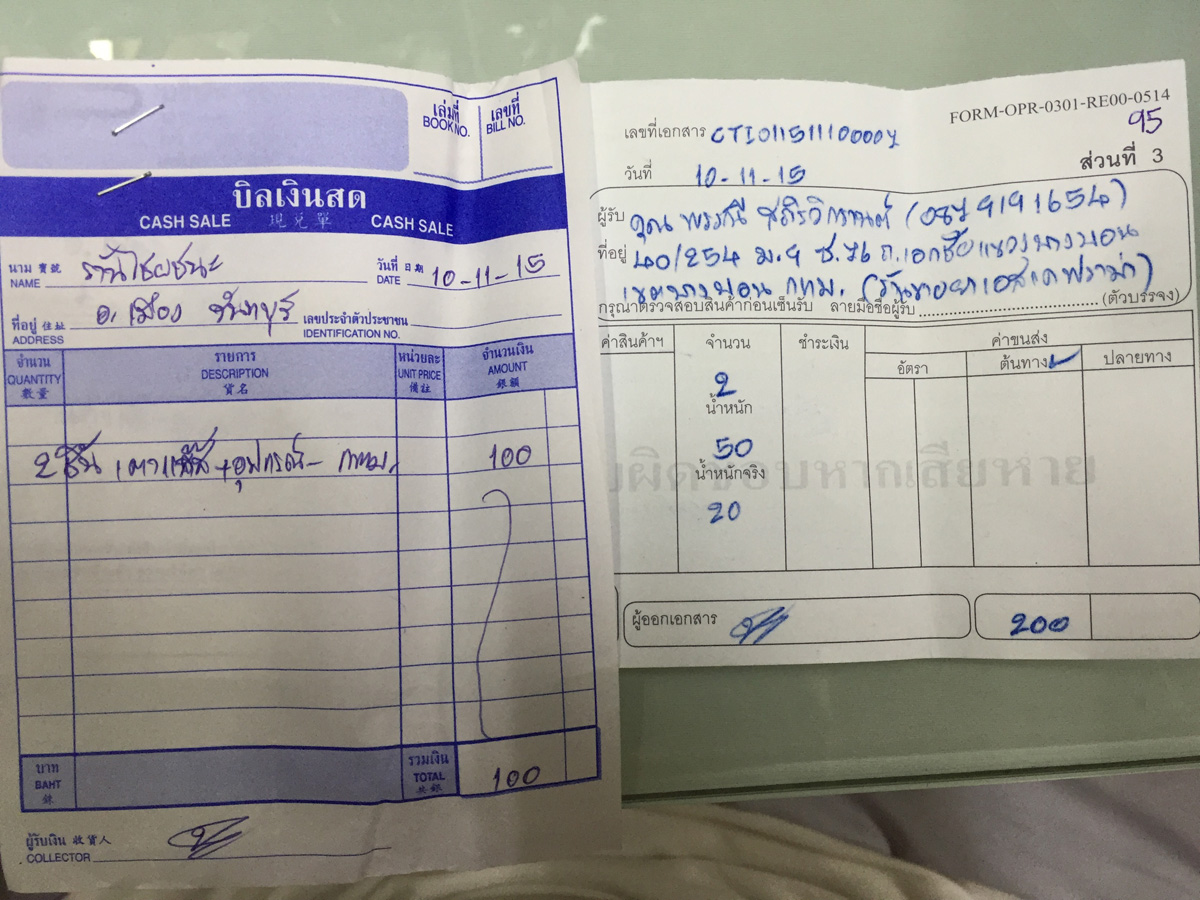 เล่มที่ เลขที่
BOOK NO. BILL NO.
บิลเงินสด
CASH SALE 現兌單 CASH SALE
นาม 寶號 ร้านไชยชนะ วันที่ 日期 10-11-15
NAME DATE
อ. เมือง จันทบุรี
ที่อยู่ 住址 เลขประจำตัวประชาชน
ADDRESS IDENTIFICATION NO.
จำนวน รายการ หน่วยละ จำนวนเงิน
QUANTITY DESCRIPTION UNIT PRICE AMOUNT
數量 貨名 備註 銀額
2 ชิ้น เตาแก๊ส + อุปกรณ์ - กทม. 100
บาท รวมเงิน
BAHT TOTAL 100
銖 共銀
ผู้รับเงิน 收貨人
COLLECTOR
FORM-OPR-0301-RE00-0514
95
เลขที่เอกสาร
ส่วนที่ 3
วันที่ 10-11-15
ผู้รับ คุณ
ที่อยู่ 40/254 ม.9 ซ.76 ถ.เอกชัย แขวงบางบอน
เขตบางบอน กทม. (ร้านขายยาเอสเคฟาร์ม่า)
กรุณาตรวจสอบสินค้าก่อนเซ็นรับ ลายมือชื่อผู้รับ (ตัวบรรจง)
ค่าสินค้าฯ จำนวน ชำระเงิน ค่าขนส่ง
อัตรา ต้นทาง ปลายทาง
2
น้ำหนัก
50
น้ำหนักจริง
20
ผิดชอบหากเสียหาย
ผู้ออกเอกสาร 200